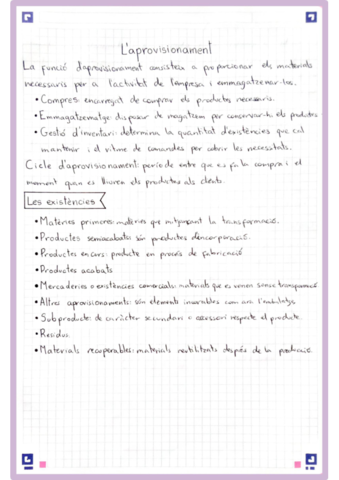 L'aprovisionament
La funció d'aprovisionament consisteix a proporcionar els materials
necessaris per a l'activitat de l'empresa i emmagatzemar-los.
• Compres: encarregat de comprar els productes necessaris.
• Emmagatzematge: disposar de magatzem per conservar-hi els productes
• Gestó d'inventari: determina la quantitat d'existències que cal
mantenir i el ritme de comandes per cobrir les necessitats.
Cicle d'aprovisionament: període entre que es fa la compra i el
moment quan es lliuren els productes als clients.
Les existències
• Matèries primeres: matèries que mitjançant la transformació.
• Productes semiacabats: són productes d'incorporació.
• Productes en curs: producte en procés de fabricació
• Productes acabats
• Mercaderies o existències comercials: materials que es venen sense transformació
• Altres aprovisionaments: són elements com ara l'embalatge.
• Subproducte: de caràcter secundari o accessori respecte el producte.
• Residus
• Materials recuperables: materials reutilitzats després de la producció.